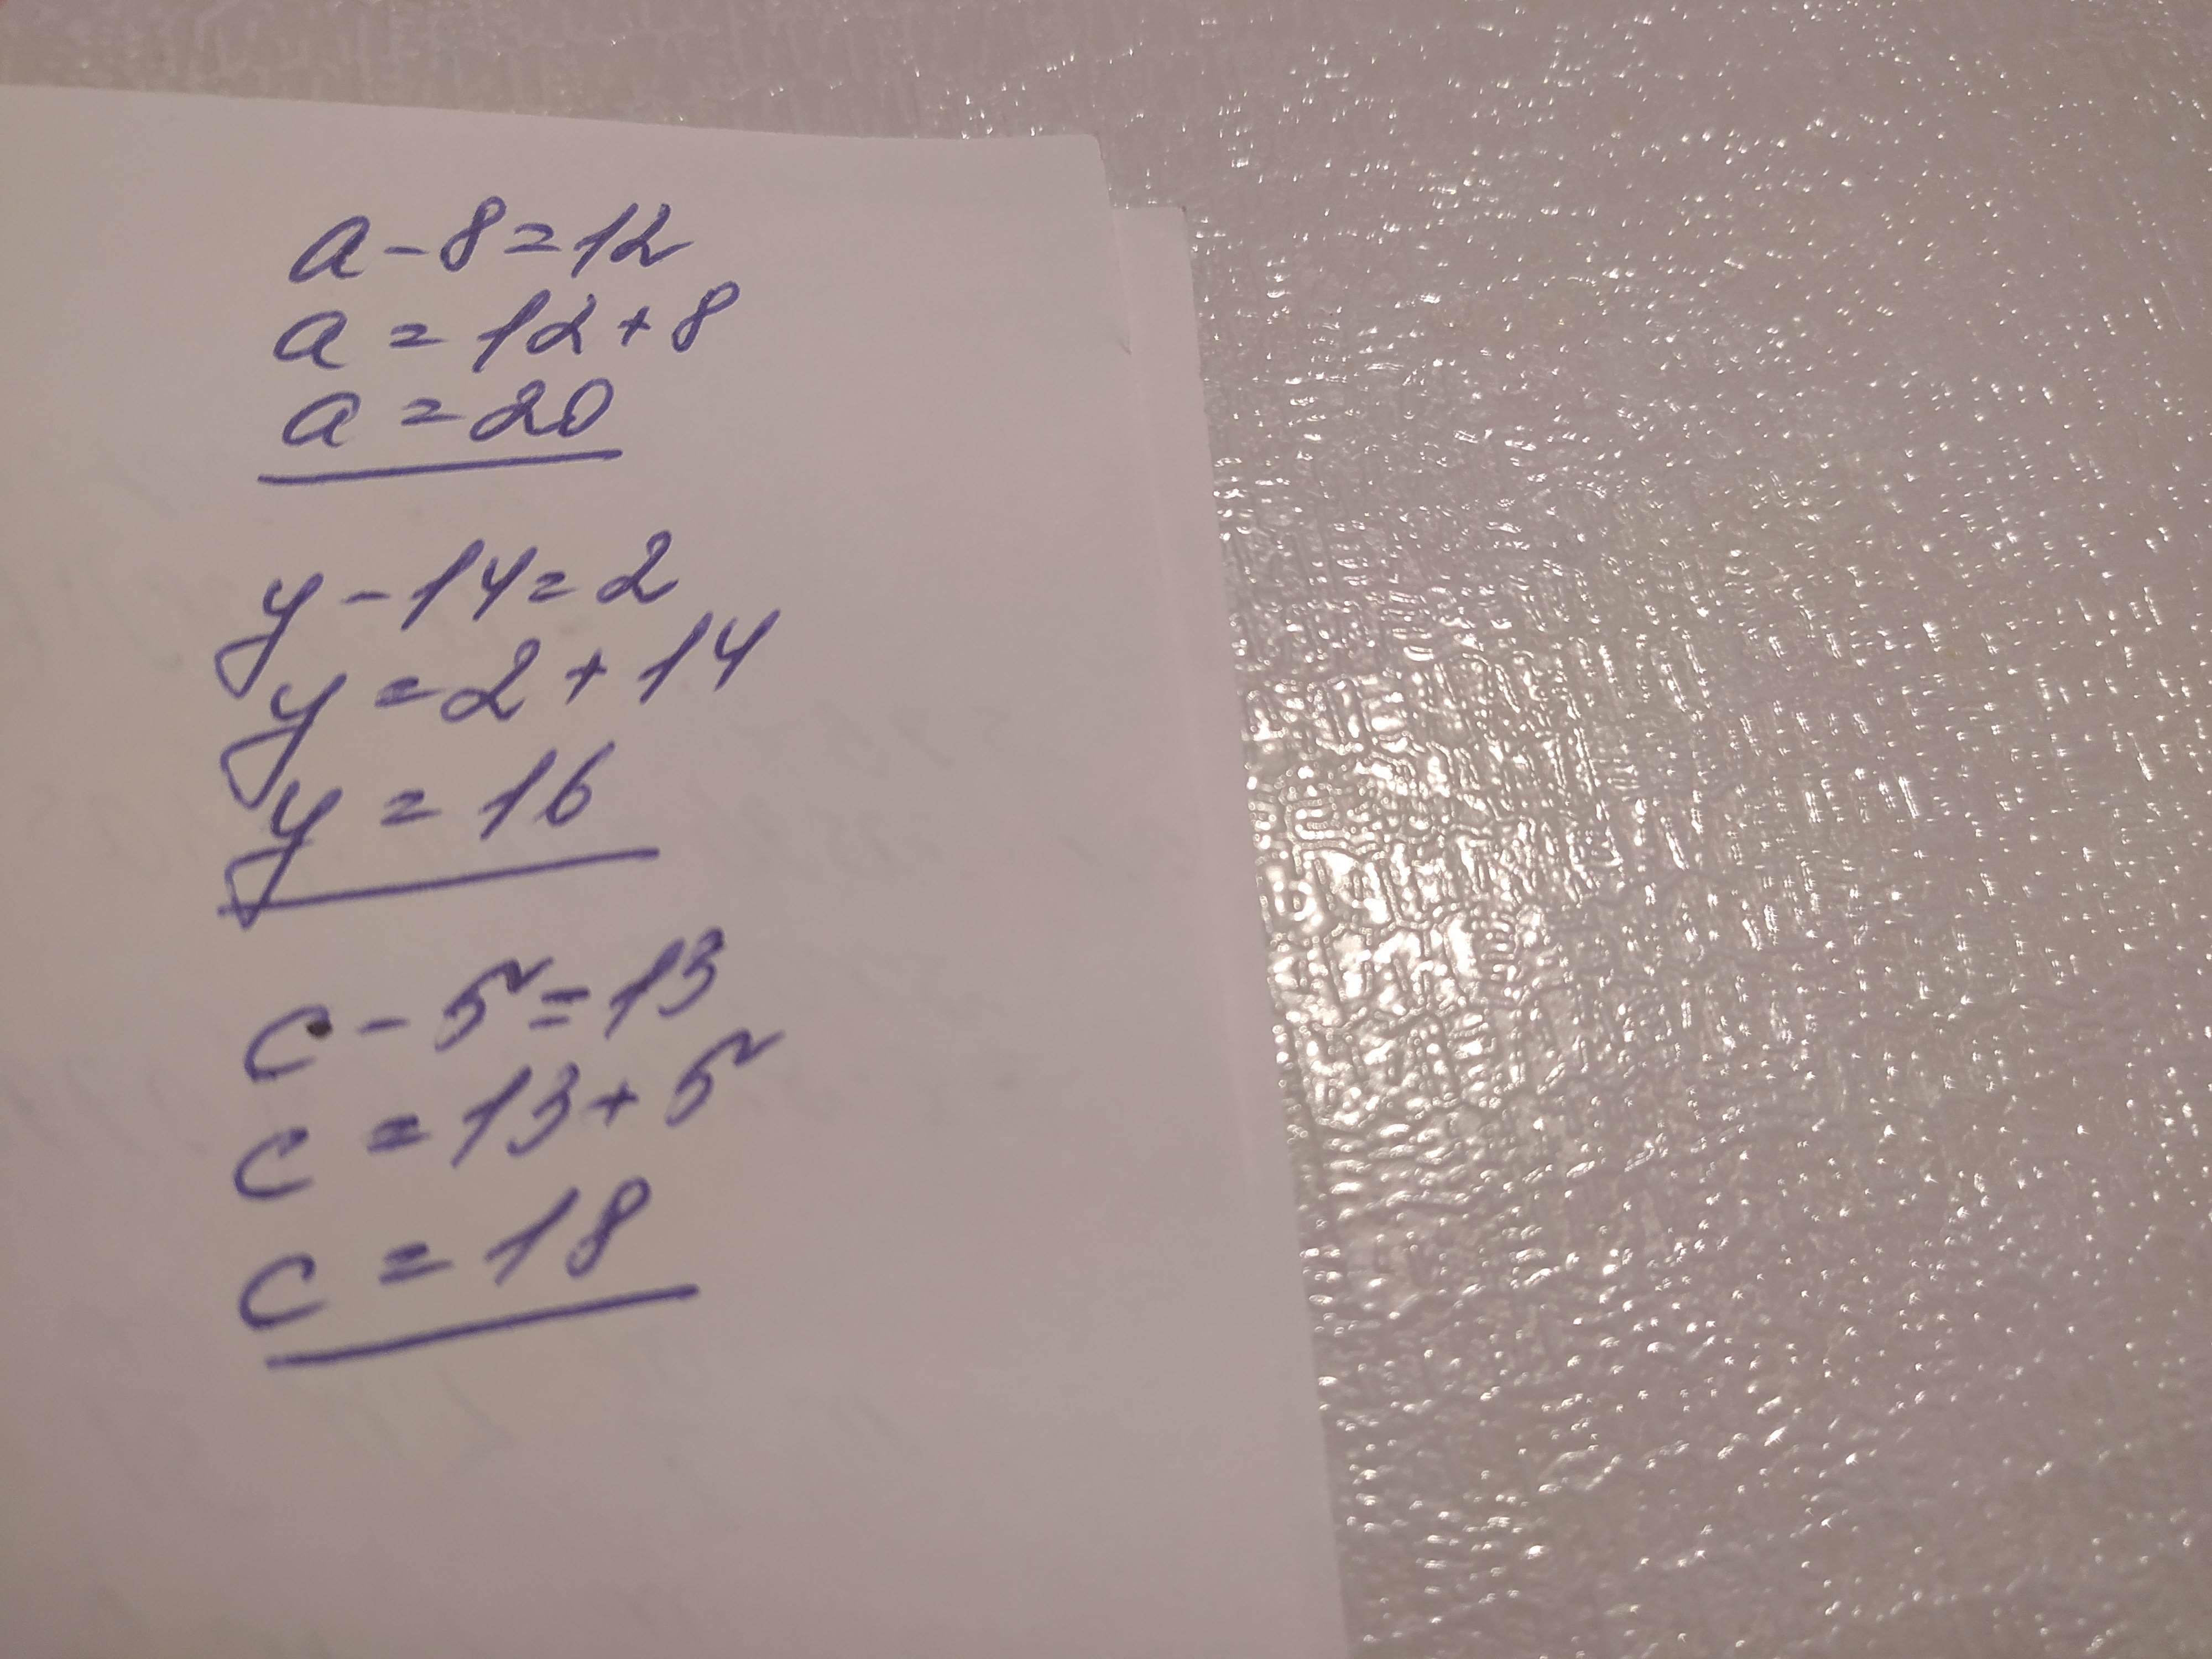 a - 8 = 12
a = 12 + 8
a = 20
y - 14 = 2
y = 2 + 14
y = 16
c - 5 = 13
c = 13 + 5
c = 18